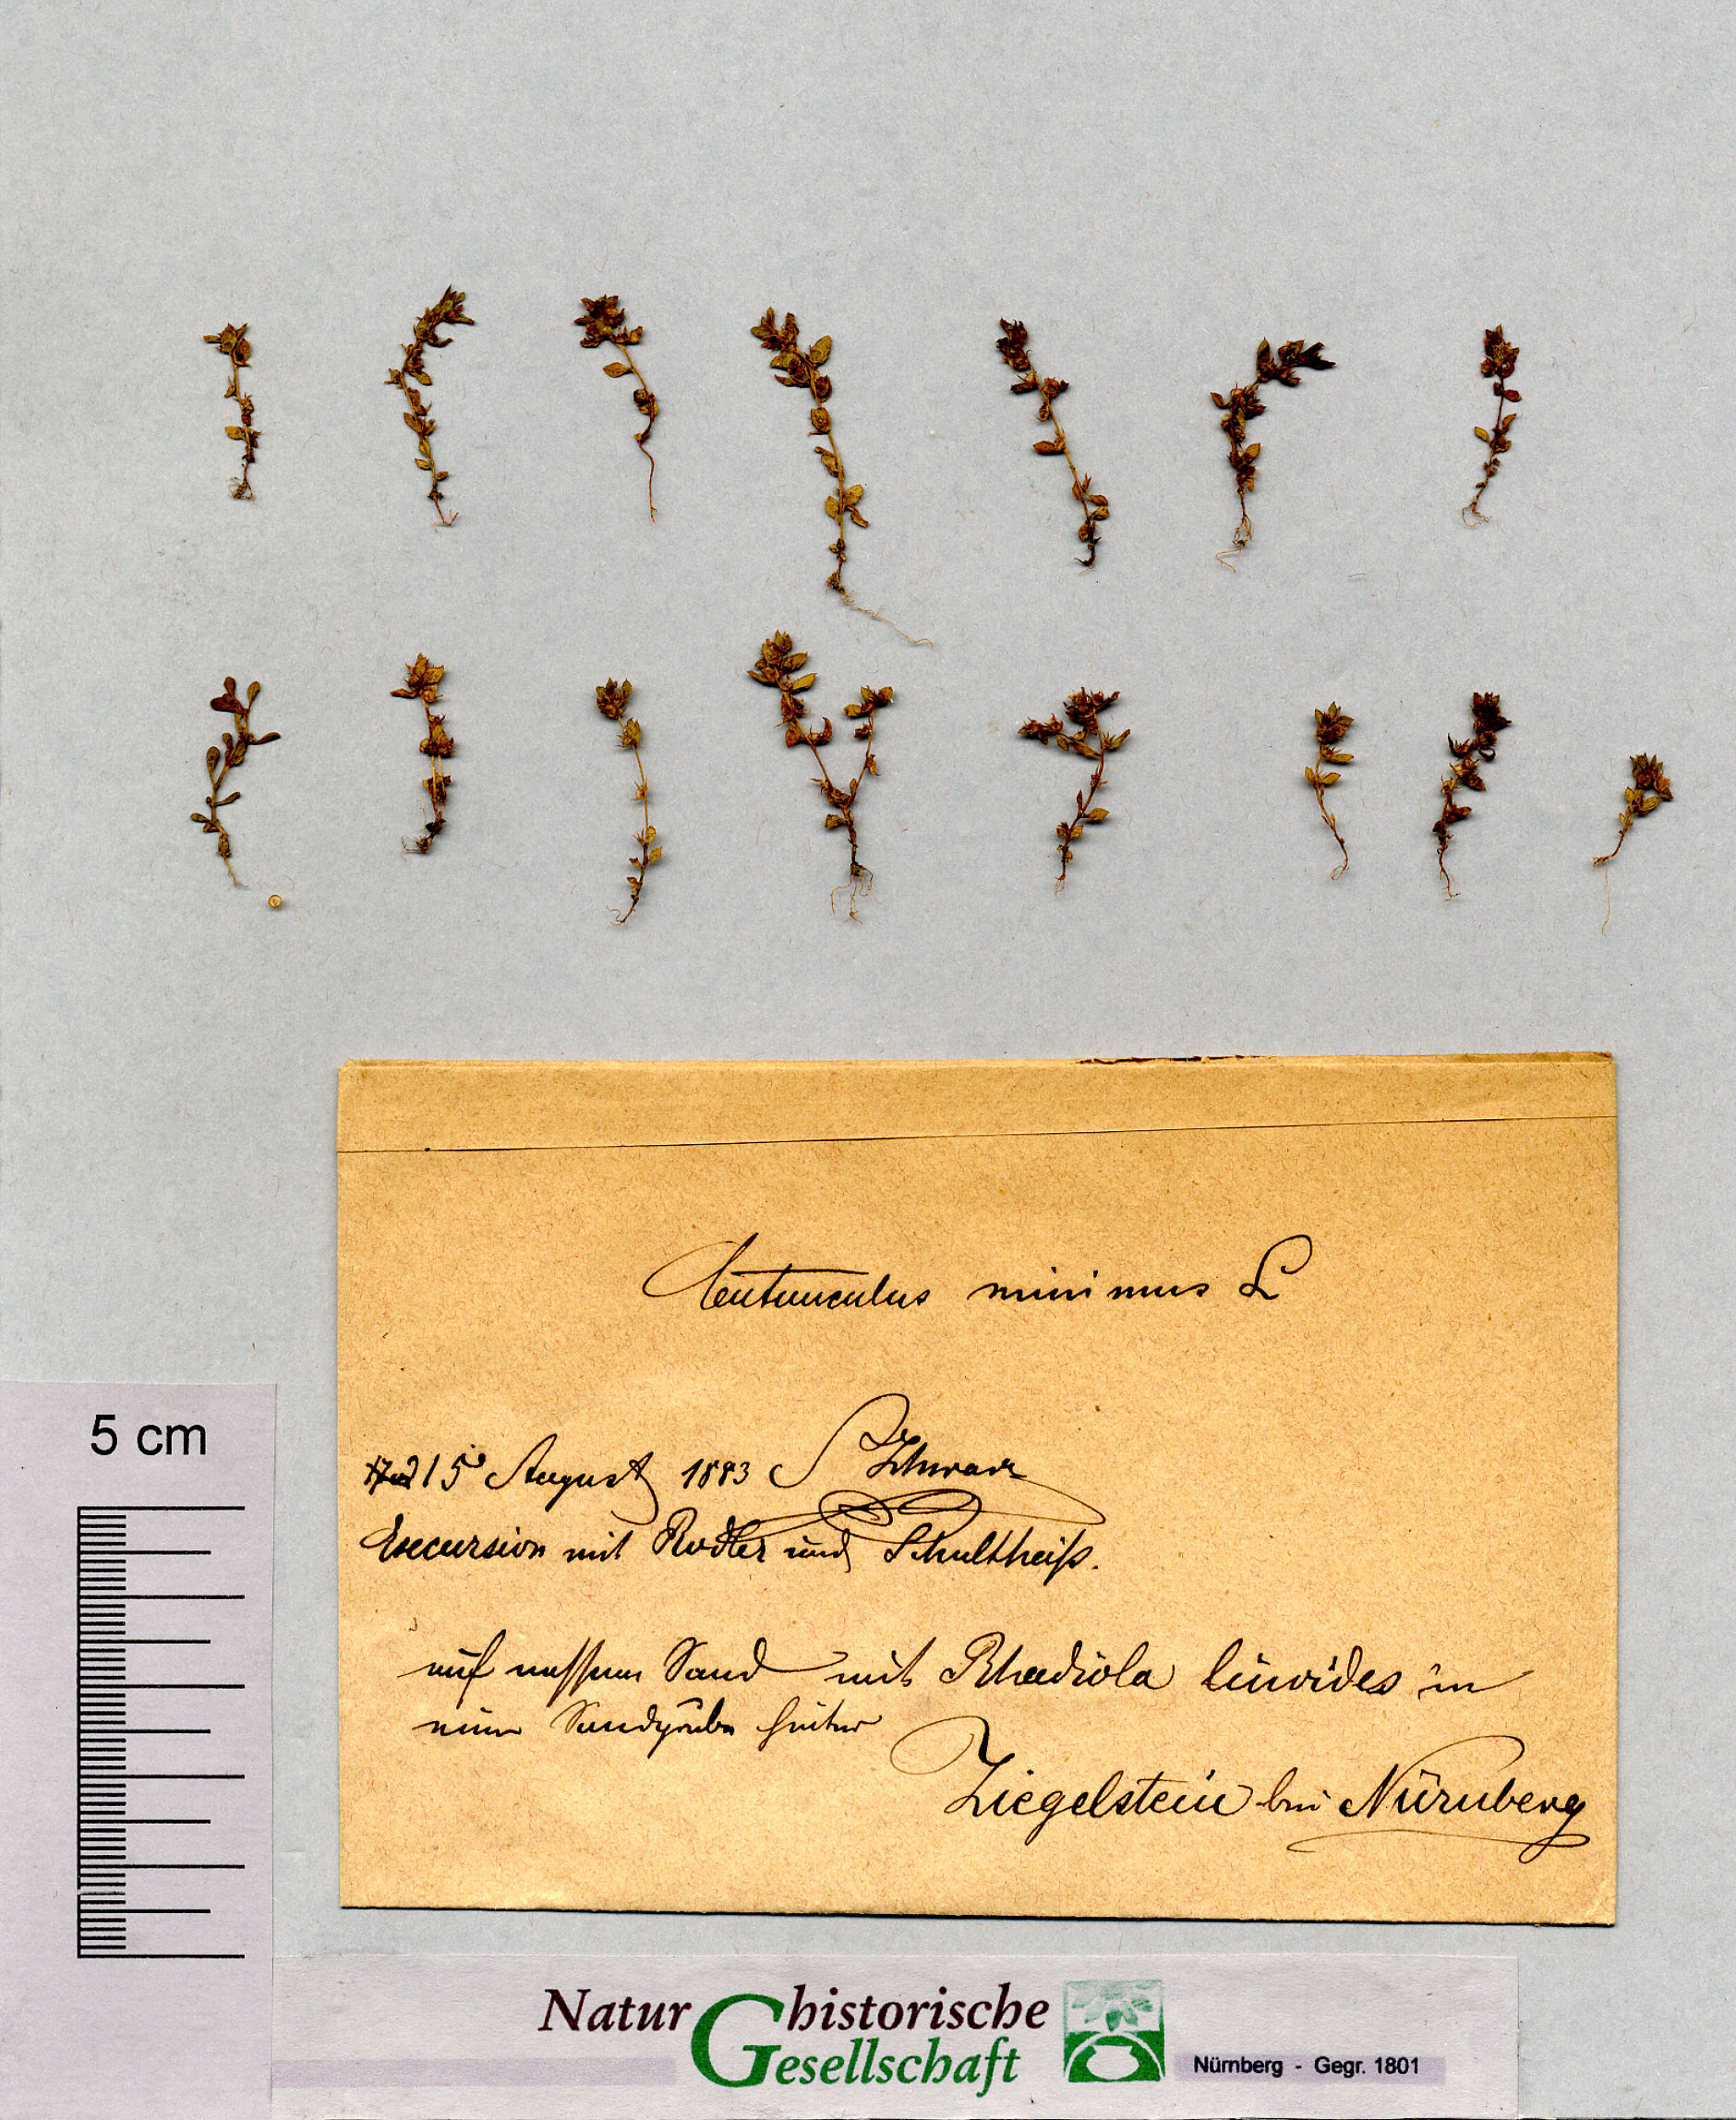 Centunculus minimus L
15 August 1883 Schwarz
Excursion mit Rodler und Schultheiß.
auf nassem Sand mit Rhadiola linoides in
einer Sandgrube hinter
Ziegelstein bei Nürnberg
5 cm
Natur historische
Gesellschaft
Nürnberg - Gegr. 1801